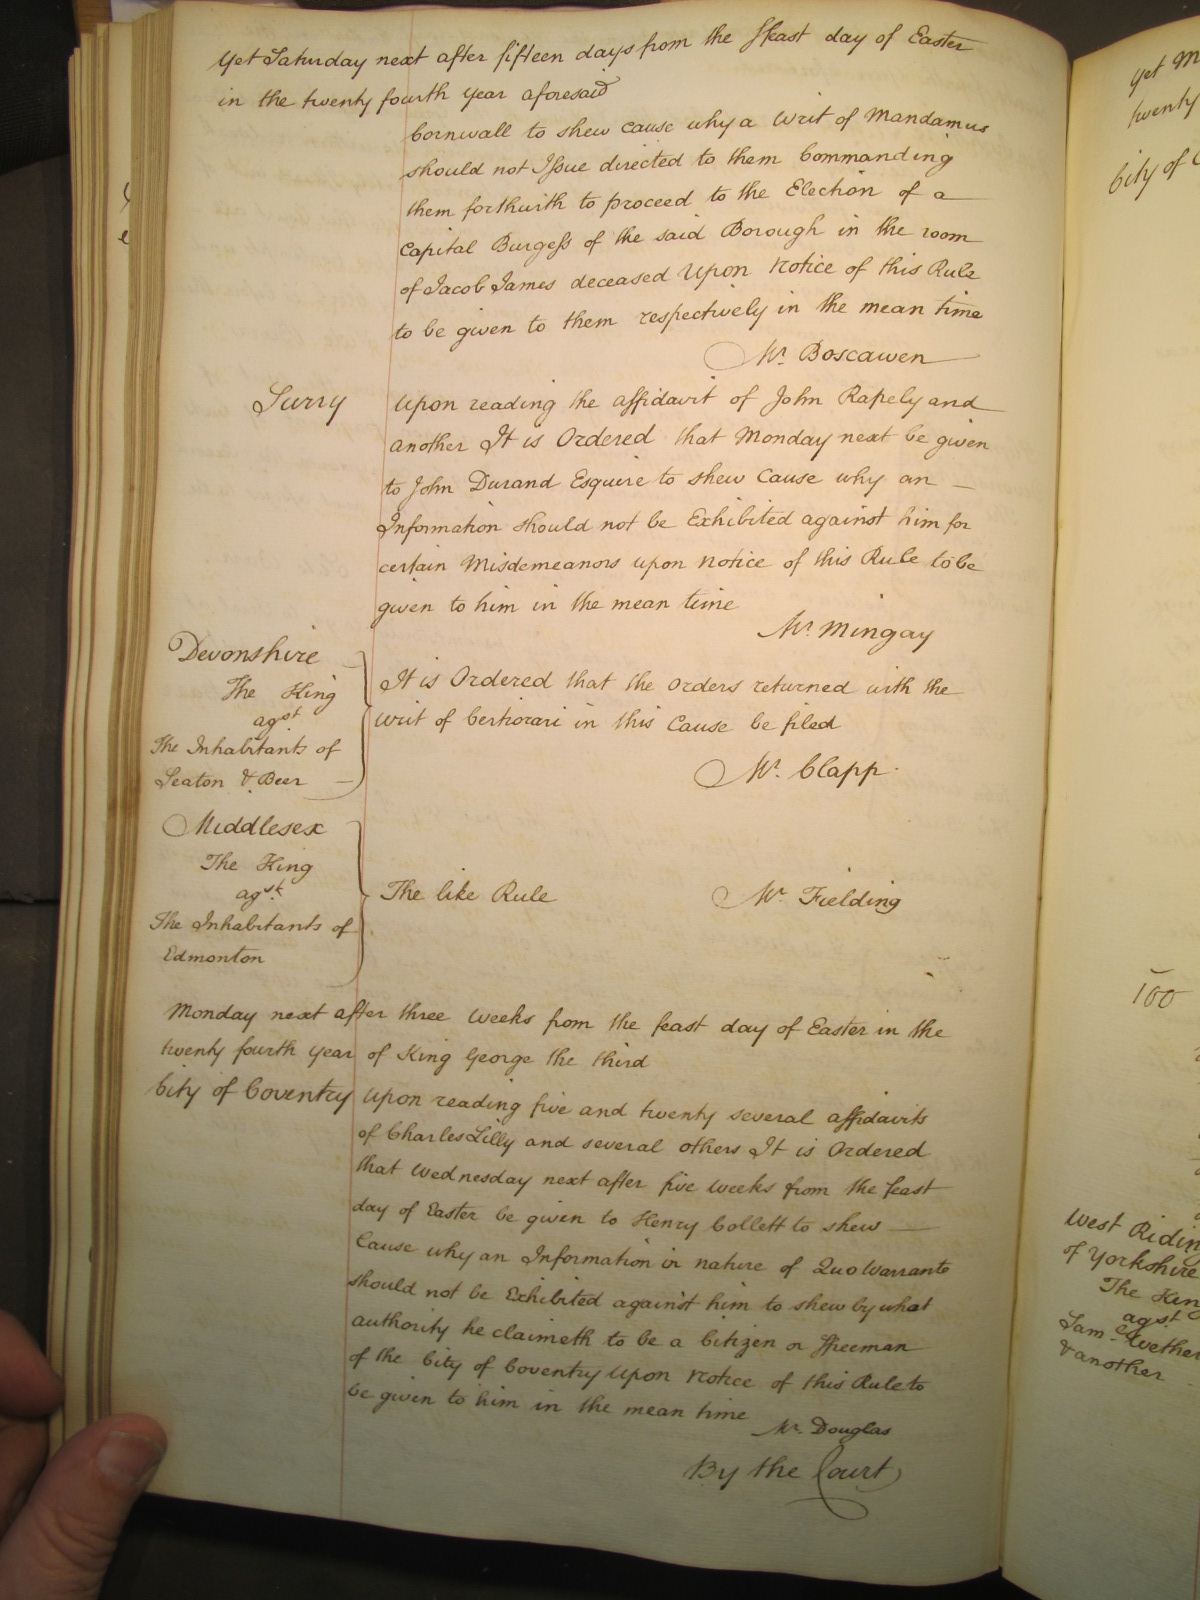 Yet Saturday next after fifteen days from the ffeast day of Easter
in the twenty fourth Year aforesaid
Cornwall to shew cause why a Writ of Mandamus
should not Issue directed to them Commanding
them forthwith to proceed to the Election of a
Capital Burgess of the said Borough in the room
of Jacob James deceased Upon Notice of this Rule
to be given to them respectively in the mean time
Mr. Boscawen
Surry
Upon reading the affidavit of John Rapely and
another It is Ordered that Monday next be given
to John Durand Esquire to shew Cause why an
Information should not be Exhibited against him for
certain Misdemeanors upon Notice of this Rule to be
given to him in the mean time
Mr. Mingay
Devonshire
The King
agst
The Inhabitants of
Seaton & Beer
It is Ordered that the Orders returned with the
Writ of Certiorari in this Cause be filed
Mr. Clapp
Middlesex
The King
agst.
The Inhabitants of
Edmonton
The like Rule
Mr. Fielding
Monday next after three Weeks from the feast day of Easter in the
twenty fourth year of King George the third
City of Coventry
Upon reading five and twenty several affidavits
of Charles Lilly and several others It is Ordered
that Wednesday next after five Weeks from the feast
day of Easter be given to Henry Collett to shew
Cause why an Information in nature of Quo Warranto
should not be Exhibited against him to shew by what
authority he claimeth to be a Citizen or ffreeman
of the City of Coventry Upon Notice of this Rule to
be given to him in the mean time
Mr. Douglas
By the Court
Yet M
twenty
City of C
100
West Ridin
of Yorkshire
The Kin
agst.
Sam. Wether
& another